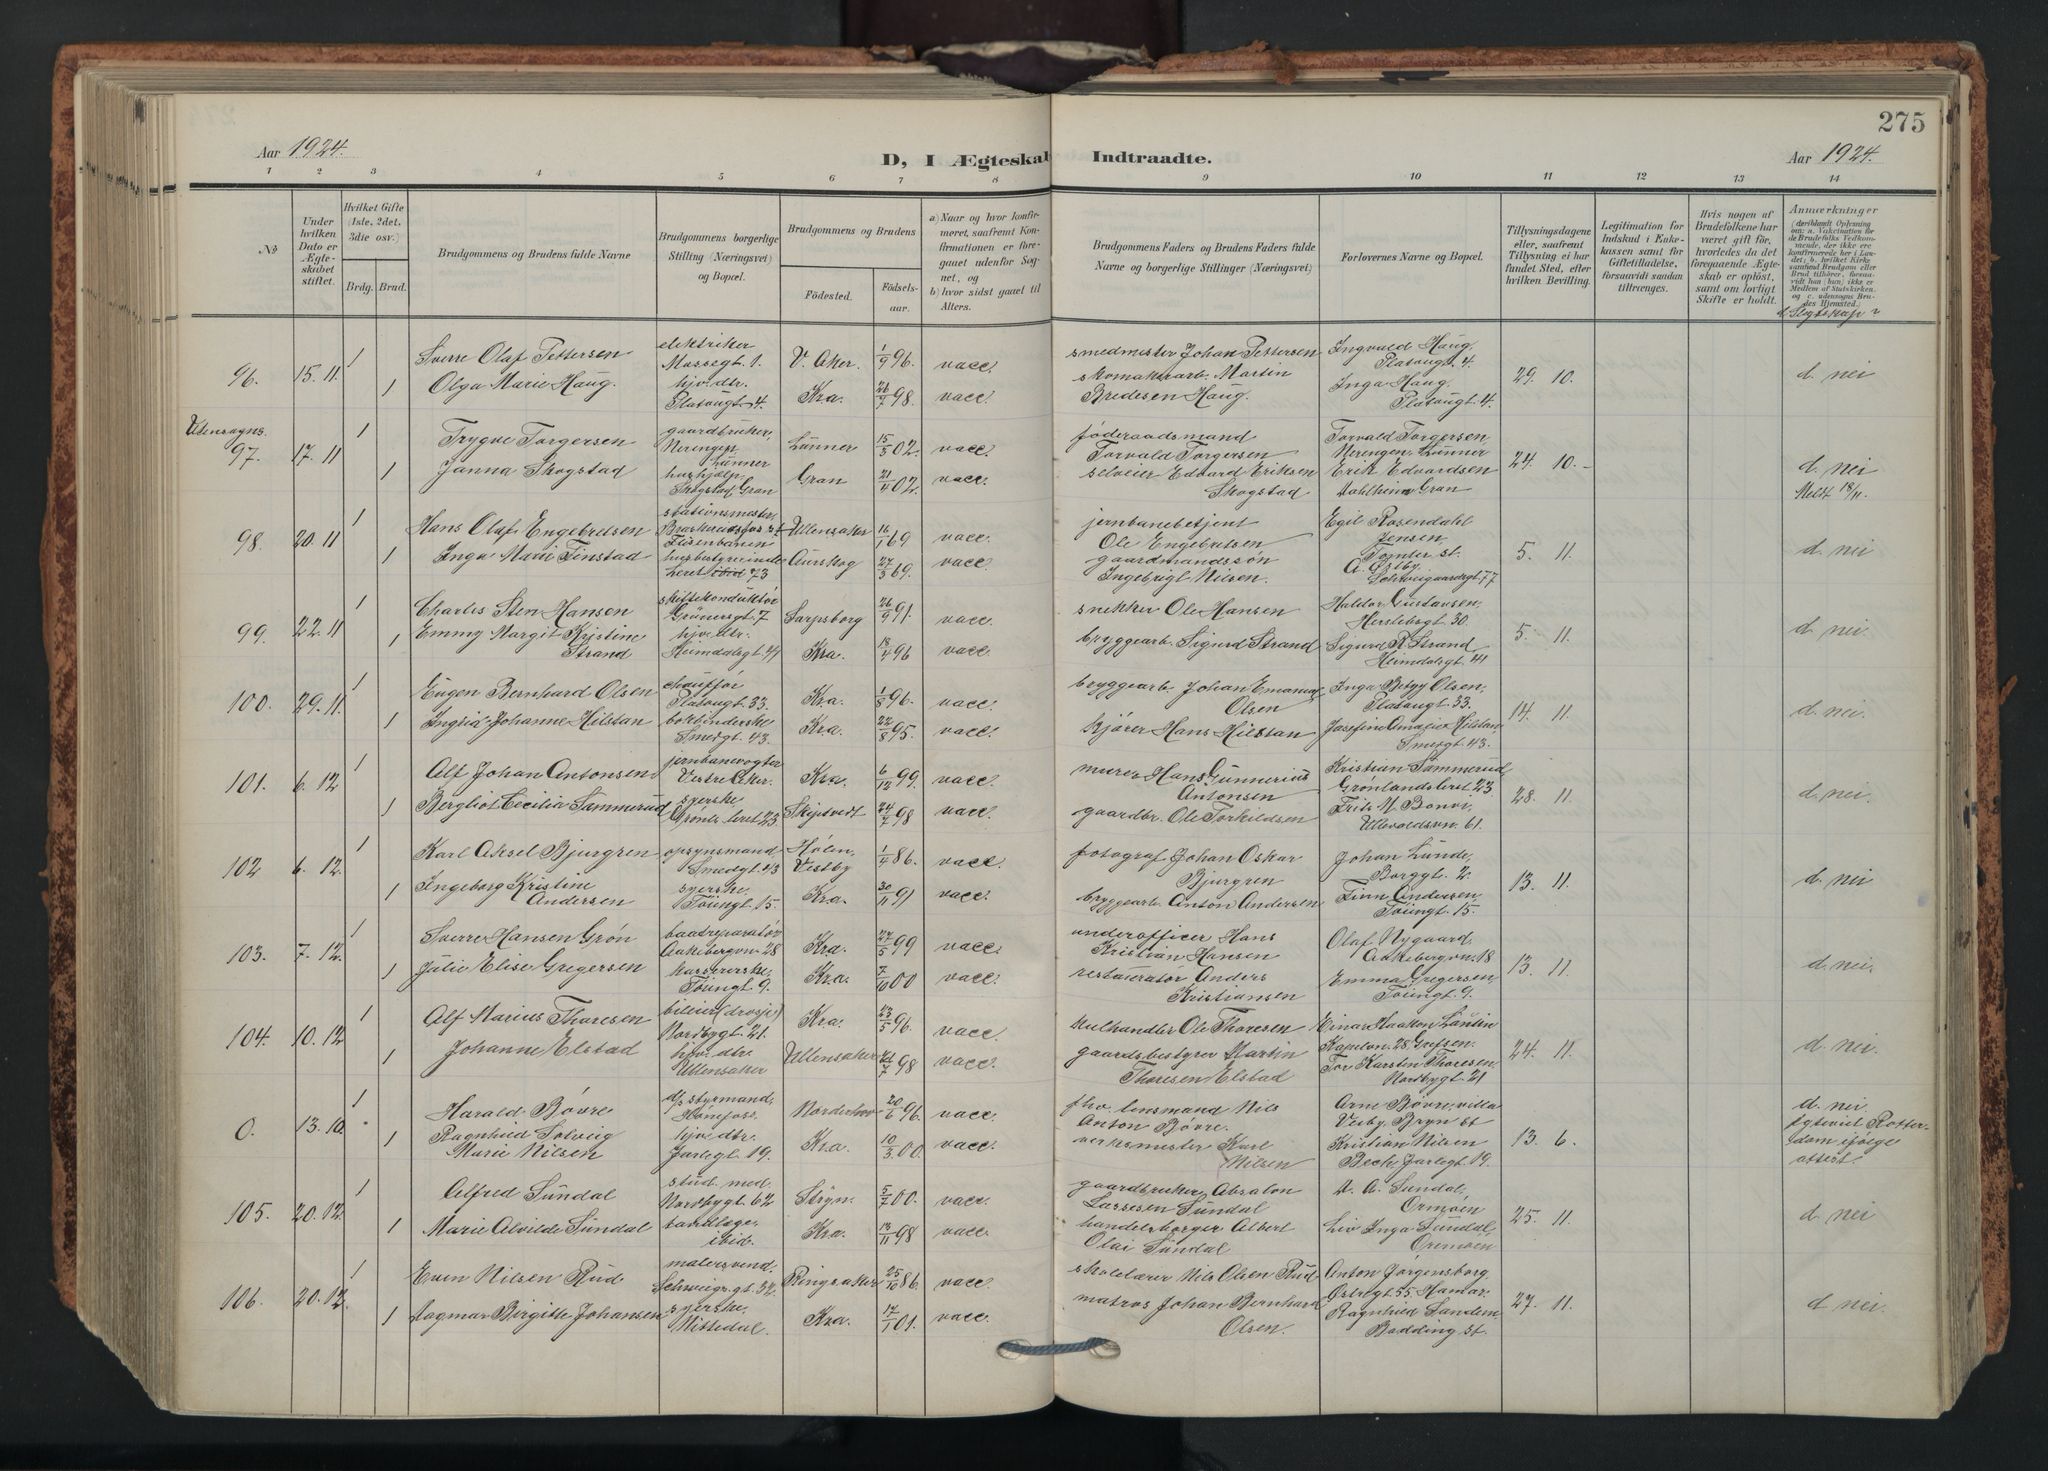 275
Aar 1924.
D, I Ægteskab Indtraadte.
Aar 1924.
1 2 3 4 5 6 7 8 9 10 11 12 13 14
No
Under hvilken Dato er Ægteskabet stiftet.
Hvilket Gifte (1ste, 2det, 3die osv.)
Brdg. Brud.
Brudgommens og Brudens fulde Navne
Brudgommens borgerlige Stilling (Næringsvei) og Bopæl.
Brudgommens og Brudens
Födested. Födselsaar.
a) Naar og hvor konfirmeret, saafremt Konfirmationen er foregaaet udenfor Sognet, og
b) hvor sidst gaaet til Alters.
Brudgommens Faders og Brudens Faders fulde Navne og borgerlige Stillinger (Næringsvei)
Forlovernes Navne og Bopæl.
Tillysningsdagene eller, saafremt Tillysning ei har fundet Sted, efter hvilken Bevilling.
Legitimation for Indskud i Enkekassen samt for Giftetilladelse, forsaavidt saadan tiltrænges.
Hvis nogen af Brudefolkene har været gift før, hvorledes da det foregaaende Ægteskab er opløst, samt om lovligt Skifte er holdt.
Anmærkninger
(deriblandt Oplysning om: a. Vaccination for de Brudefolks Vedkommende, der ikke ere konfirmerede her i Landet; b. hvilket Kirkesamfund Brudgom eller Brud tilhører, forsaavidt han (hun) ikke er Medlem af Statskirken, og c. udensogns Brudes Hjemsted.)
d. Slegtskap?
96. 15. 11 1 Sverre Olaf Pettersen elektriker Mossegt. 1. V. Aker. 1/9 96. vacc. smedmester Johan Pettersen Ingvald Haug, Platougt. 4. 29. 10. d. nei
1 Olga Marie Haug. hjv. dtr. Platougt. 4. Kra. 26/7 98. vacc. skomakerarb. Martin Bredesen Haug. Inga Haug, Platougt. 4.
Utensogns.
97. 17. 11 1 Trygve Torgersen gaardbruker, Nerengen Lunner Lunner 15/5 02. vacc. föderaadsmand Torvald Torgersen Torvald Torgersen, Nerengen, Lunner 24. 10.
1 Janna Skogstad hushjælp, Skogstad, Gran Gran 21/4 02. vacc. selveier Edvard Eriksen Skogstad Erik Edvardsen Dahlheim Gran d. nei
Meldt 18/11.
98. 20. 11 1 Hans Olaf Engebretsen stationsmester, Ullensaker 16/1 69 vacc. jernbanebetjent Ole Engebretsen Egil Rosendahl Jensen, Tomter st. 5. 11. d. nei
1 Inga Marie Finstad husbestyrerinde Aurskog 27/3 69. vacc. gaardmandssön Ingebrigt Nilsen. A. Østby,
99. 22. 11 1 Charles Sten Hansen skiftekonduktør Grünersgt. 7 Sarpsborg 26/9 91. vacc. snekker Ole Hansen Haldor Gustavsen, Herslebsgt. 30. 5. 11. d. nei
1 Emmy Margit Kristine Strand hjv. dtr. Heimdalsgt. 41 Kra. 18/4 96 vacc. bryggearb. Sigurd Strand Sigurd R. Strand Heimdalsgt. 41
100. 29. 11 1 Eugen Bernhard Olsen chauffør Platougt. 33. Kra. 1/8 96. vacc. bryggearb. Johan Emanuel Olsen Inga Betzy Olsen, Platougt. 33. 14. 11. d. nei.
1 Ingrid Johanne Hilstan bokbinderske Smedgt. 43. Kra. 22/8 95. vacc. kjører Hans Hilstan Josefine Amalie Hilstan, Smedgt. 43.
101. 6. 12 1 Alf Johan Antonsen jernbanevogter Vestre Aker. Kra. 6/12 99. vacc. murer Hans Gunnerius Antonsen Kristian Sammerud Grønlandsleret 23. 28. 11. d. nei.
1 Bergliot Cecilia Sammerud syerske Grønl. leret 23 Skiptvedt 24/7 98 vacc. gaardbr. Ole Torkildsen Fritz M. Ullevoldsvn. 61.
102 6. 12. 1 Karl Aksel Bjurgren opsynsmand, Smedgt. 43 Hølen, Vestby 1/4 86. vacc. fotograf Johan Oskar Bjurgren Johan Lunde, Borggt. 2. 13. 11. d. nei
1 Ingeborg Kristine Andersen syerske, Töiengt. 15. Kra. 30/11 91 vacc. bryggearb. Anton Andersen Finn Andersen Töiengt. 15.
103. 7. 12. 1 Sverre Hansen Grøn baadreparatør Aakebergvn. 28 Kra. 27/5 99 vacc. underofficer Hans Kristian Hansen Olaf Nygaard, Aakebergvn. 18 13. 11. d. nei.
1 Julie Elise Gregersen kassererske, Töiengt. 9. Kra. 7/10 00 vacc. restauratør Anders Kristiansen Emma Gregersen Töiengt. 9.
104. 10. 12 1 Alf Marius Thoresen bileier (drosje) Nordbygt. 21. Kra. 23/5 96. vacc. kulhandler Ole Thoresen Einar Haakon Kapelvn. 28, Grefsen. 24. 11. d. nei.
1 Johanne Elstad hjv. dtr. Ullensaker Ullensaker 26/7 98 vacc. gaardsbestyrer Martin Thoresen Elstad Tor Karsten Thoresen, Nordbygt. 21
0. 13. 10 1 Harald Bøvre d/s styrmand, Hønefoss. Norderhov 20/6 96. vacc. fhv. lensmand Nils Anton Bøvre. Arne Bøvre, villa Vesby, Bryn st 13. 6. d. nei
1 Ragnhild Solveig Marie Nilsen hjv. dtr. Jarlegt. 19. Kra. 10/3 00. vacc. verksmester Karl Nilsen Kristian Nilsen Bech, Jarlegt. 19. Egteviet Rotterdam ifölge attest.
105. 20. 12. 1 Alfred Sundal stud. med. Nordbygt. 62 Stryn. 5/7 00. vacc. gaardbruker Absalon Lassesen Sundal A. A. Sundal, Ormøen 25. 11. d. nei
1 Marie Alvilde Sundal tandlæge, ibid. Kra. 13/11 98 vacc. handelsborger Albert Olai Sundal Liv Inga Sundal, Ormøen
106. 20. 12. 1 Even Nilsen Rud malersvend, Schweigsgt. 32 Ringsaker 25/10 86. vacc. skolelærer Nils Olsen Rud Anton Jørgensborg, Østregt. 55, Hamar. 27. 11. d nei.
1 Dagmar Birgitte Johansen syerske, Nittedal. Kra. 17/1 01. vacc. matros Johan Bernhard Olsen. Ragnhild Sandem Bødding st.